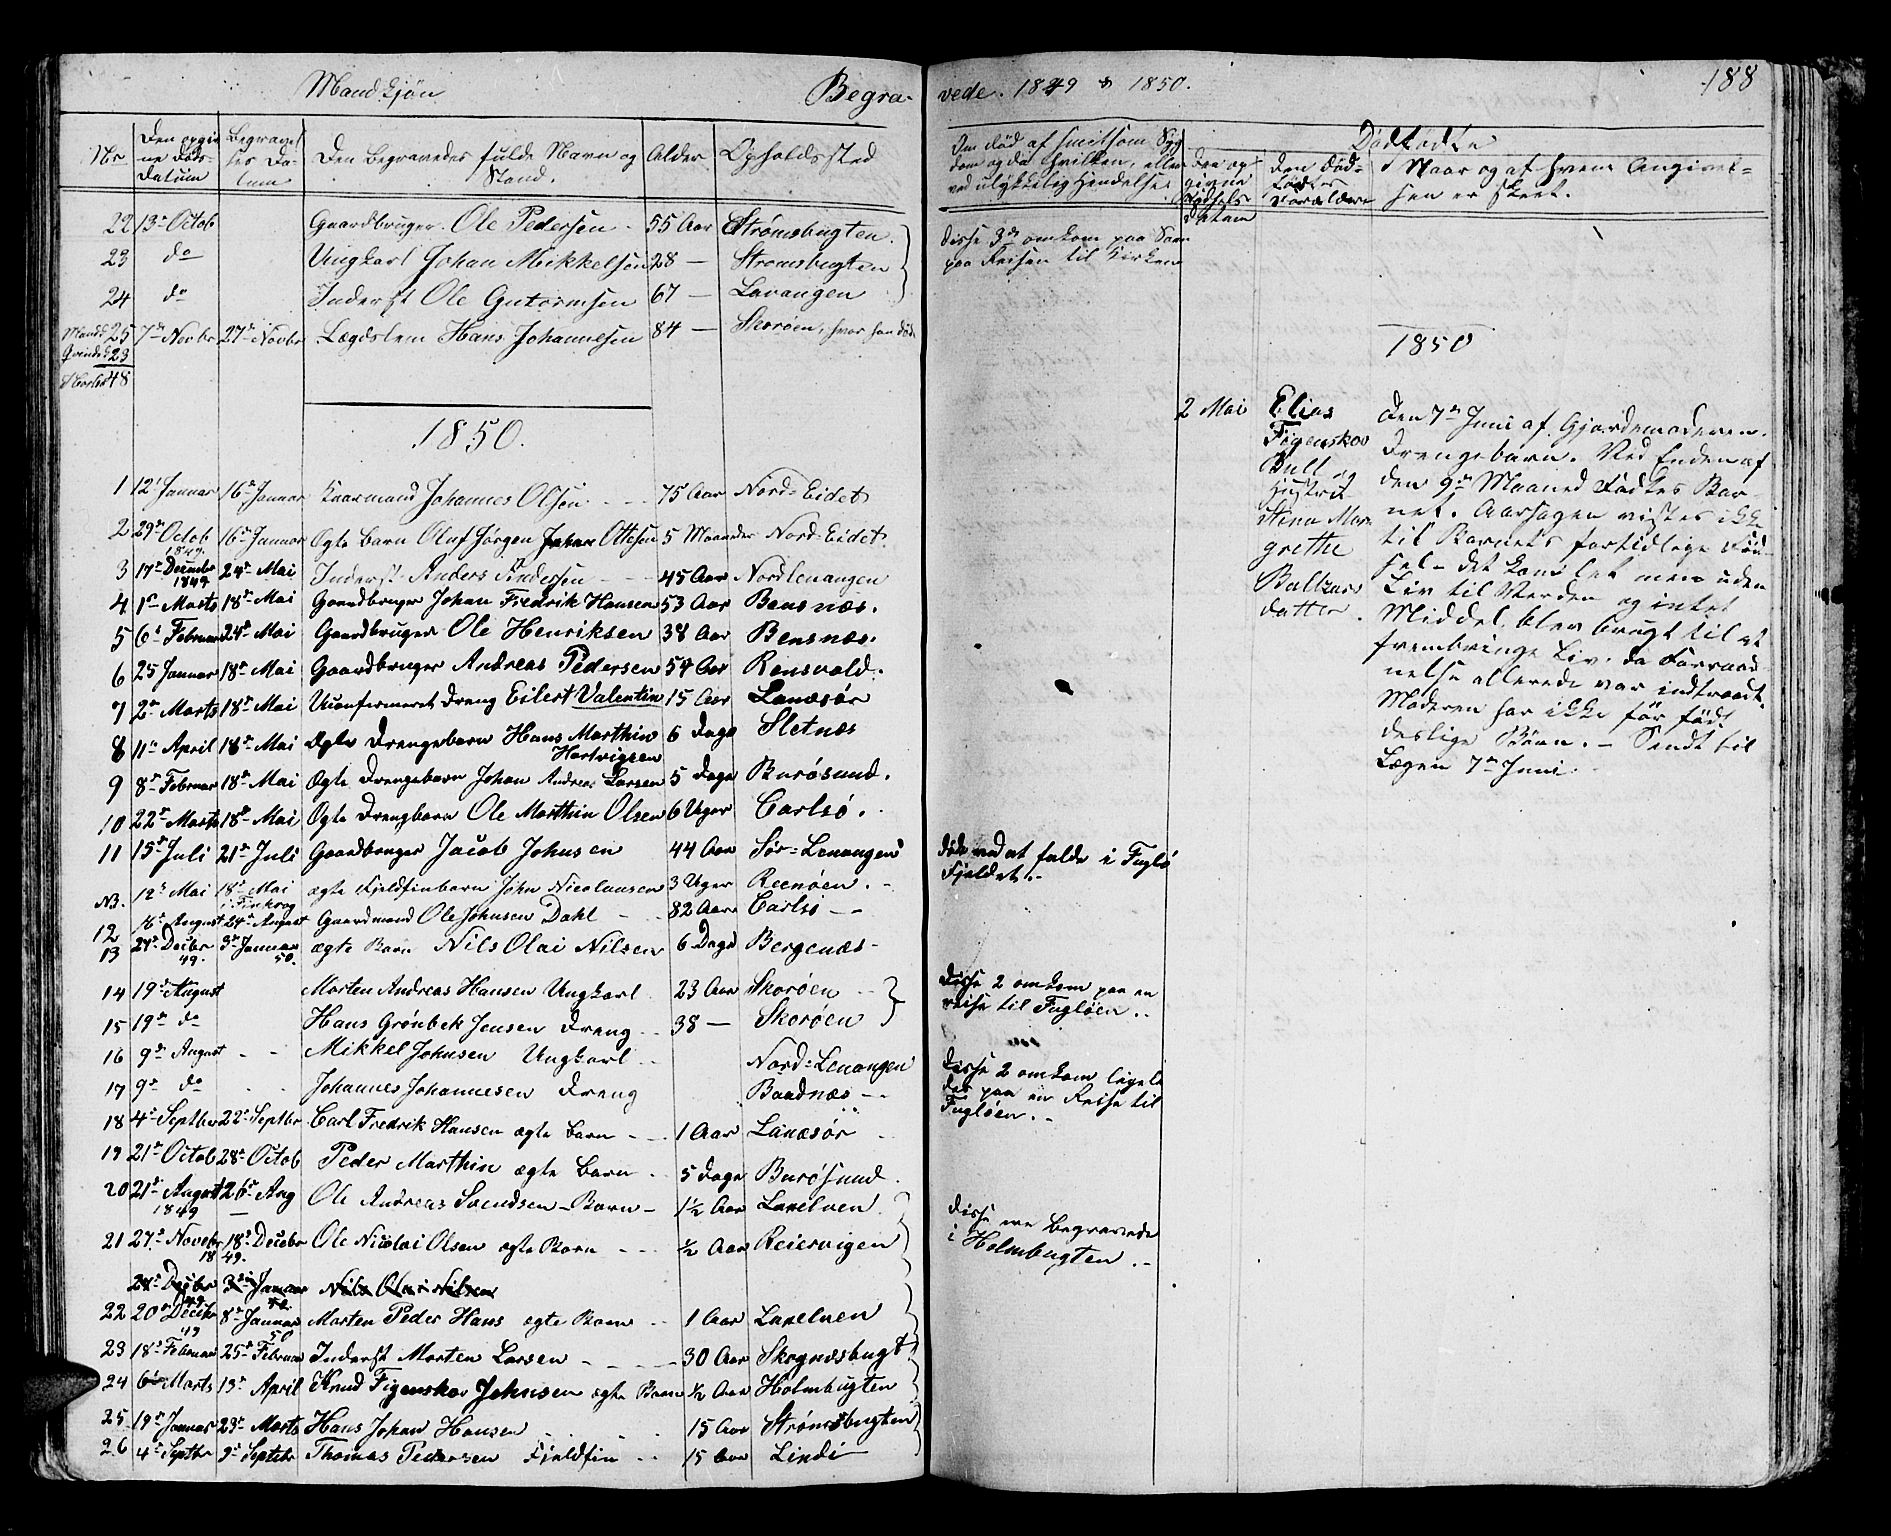 Mandkjøn
Begra-
Nr
Den opgiv
ne Døds-
Datum
Begravel
ses Da-
tum
Den Begravedes fulde Navn og
Stand.
Alder
Opholdssted
22 13de Octob Gaardbruger Ole Pedersen 55 Aar Strømsbugten
23 do Ungkarl Johan Mikkelsen 28 — Strømsbugten
24 do Inderst Ole Gutormsen 67 — Lavangen
Mandk 25 7de Novbr 27de Novbr Lægdslem Hans Johannesen 84 — Skorøen, hvor han døde
Qvindek 23
48
1850.
1 12te Januar 16de Januar Kaarmand Johannes Olsen 75 Aar Nord-Eidet
2 29de Octob 1849 16de Januar Ægte Barn Oluf Jørgen Johan Ottesen 5 Maaneder Nord-Eidet
3 17de Decembr 1849 24de Mai Inderst Anders Andersen 45 Aar Nordlenangen
4 1ste Marts 18de Mai Gaardbruger Johan Fredrik Hansen 53 Aar Bensnæs.
5 6te Februar 24de Mai Gaardbruger Ole Henriksen 38 Aar Bensnæs.
6 25 Januar 18de Mai Gaardbruger Andreas Pedersen 54 Aar Rensvold.
7 2den Marts 18de Mai Uconfirmeret Dreng Eilert Valentin 15 Aar Lanæsør
8 11te April 18de Mai Ægte Drengebarn Hans Marthin Hartvigsen 6 Dage Sletnæs
9 8de Februar 18de Mai Ægte Drengebarn Johan Andreas Larsen 5 Dage Burøsund.
10 22de Marts 18de Mai Ægte Drengbarn Ole Marthin Olsen 6 Uger Carlsø.
11 15de Juli 21de Juli Gaardbruger Jacob Johnsen 44 Aar Sør-Lenangen
NB. 12te Mai 18de Mai ægte Fjeldfinbarn John Nicolausen 3 Uger Reenøen.
12 16de August 24de August Gaardmand Ole Johnsen Dahl 82 Aar Carlsø
13 27de Decbr 49. 3de Januar 50. ægte Barn Nils Olai Nilsen 6 Dage Bergenæs
14 19de August Morten Andreas Hansen Ungkarl 23 Aar Skorøen
15 19de do Hans Grønbek Jensen Dreng 38 — Skorøen
16 9de August Mikkel Johnsen Ungkarl Nord-Lenangen
17 9de do Johannes Johannesen Dreng Baadnæs
18 4de Septbr 22de Septbr Carl Fredrik Hansen ægte Barn 1 Aar Lanæsør
19 21de Octob 28de Octob Peder Marthin ægte Barn 5 Dage Burøsund.
20 21de August 1849 26de Aug Ole Andreas Svendsen Barn 1½ Aar Laxelven
21 27de Novebr 18de Decebr 1849. Ole Nicolai Olsen ægte Barn ½ Aar Reiervigen
27de Decbr 49 3de Januar Nils Olai Nilsen
22 20de Decebr 49 8de Januar 50 Morten Peder Hans ægte Barn 1 Aar Laxelven
23 18de Februar 25de Februar Inderst Morten Larsen 30 Aar Skognæsbugt
24 6te Marts 13de April Knud Figenskov Johnsen ægte Barn ½ Aar Holmbugten
25 19de Januar 23de Marts Hans Johan Hansen 15 Aar Strømsbugten
26 4de Septbr 9de Septebr Thomas Pedersen Fjeldfin 15 Aar Lindi
vede. 1849 & 1850.
188
Om død af smitsom Syg
dom og da hvilken, eller
ved ulykkelig Hendelse.
Dødfødte
Den op-
givne
Fødsels
Datum
Den Død-
fødtes
Forældre
Naar og af hvem Angivel-
sen er skeet.
Disse 3de omkom paa Søen
paa Reisen til Kirken
1850
2 Mai
Elias
Figenskov
Bull og
Hustru
Anna Mar
grethe
Baltzers
datter.
Den 7de Juni af Gjordemoderen.
Drengebarn. Ved Enden af
den 9de Maaned Fødtes Bar-
net. Aarsagen vistes ikke
til Barnets fortidlige Fød-
sel - det kom let men uden
Liv til Verden og intet
Middel blev brugt til at
frembringe Liv, da Forraad-
nelse allerede var indtraadt.
Moderen har ikke før født
deslige Børn. - Sendt til
Lægen 7de Juni.
døde ved at falde i Fuglø
Fjeldet.
Disse 2 omkom paa en
reise til Fugløen.
Disse 2 omkom ligele
des paa en Reise til
Fugløen.
Disse ere begravede
i Holmbugten.